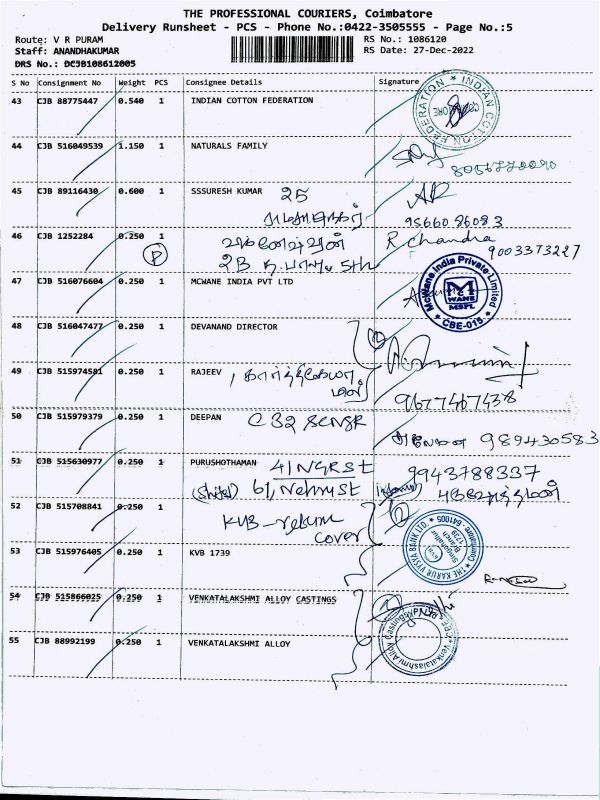 THE PROFESSIONAL COURIERS, Coimbatore
Delivery Runsheet - PCS - Phone No.:0422-3505555 - Page No.:5
Route: V R PURAM RS No.: 1086120
Staff: ANANDHAKUMAR RS Date: 27-Dec-2022
DRS No.: DCJB108612005
S No Consignment No Weight PCS Consignee Details Signature
43 CJB 88775447 0.540 1 INDIAN COTTON FEDERATION
INDIAN COTTON FEDERATION
44 CJB 516049539 1.150 1 NATURALS FAMILY
45 CJB 89116430 0.600 1 SSSURESH KUMAR 25 AR
9566086083
46 CJB 1252284 0.250 1 R Chandra
P 2B 5th 9003373227
47 CJB 516076604 0.250 1 MCWANE INDIA PVT LTD
McWane India Private Limited
M
WANE
MSPL
CBE-015.
48 CJB 516047477 0.250 1 DEVANAND DIRECTOR
49 CJB 515974581 0.250 1 RAJEEV
9677467438
50 CJB 515979379 0.250 1 DEEPAN
989430583
51 CJB 515630977 0.250 1 PURUSHOTHAMAN 9943788337
52 CJB 515708841 0.250 1 KVB-return
cover
THE KARUR VYSYA BANK LTD.
Singanallur
Branch
1739
Coimbatore - 641005
53 CJB 515976405 0.250 1 KVB 1739
54 CJB 515866025 0.250 1 VENKATALAKSHMI ALLOY CASTINGS
55 CJB 88992199 0.250 1 VENKATALAKSHMI ALLOY
Venkatalashmi Alloy Castings